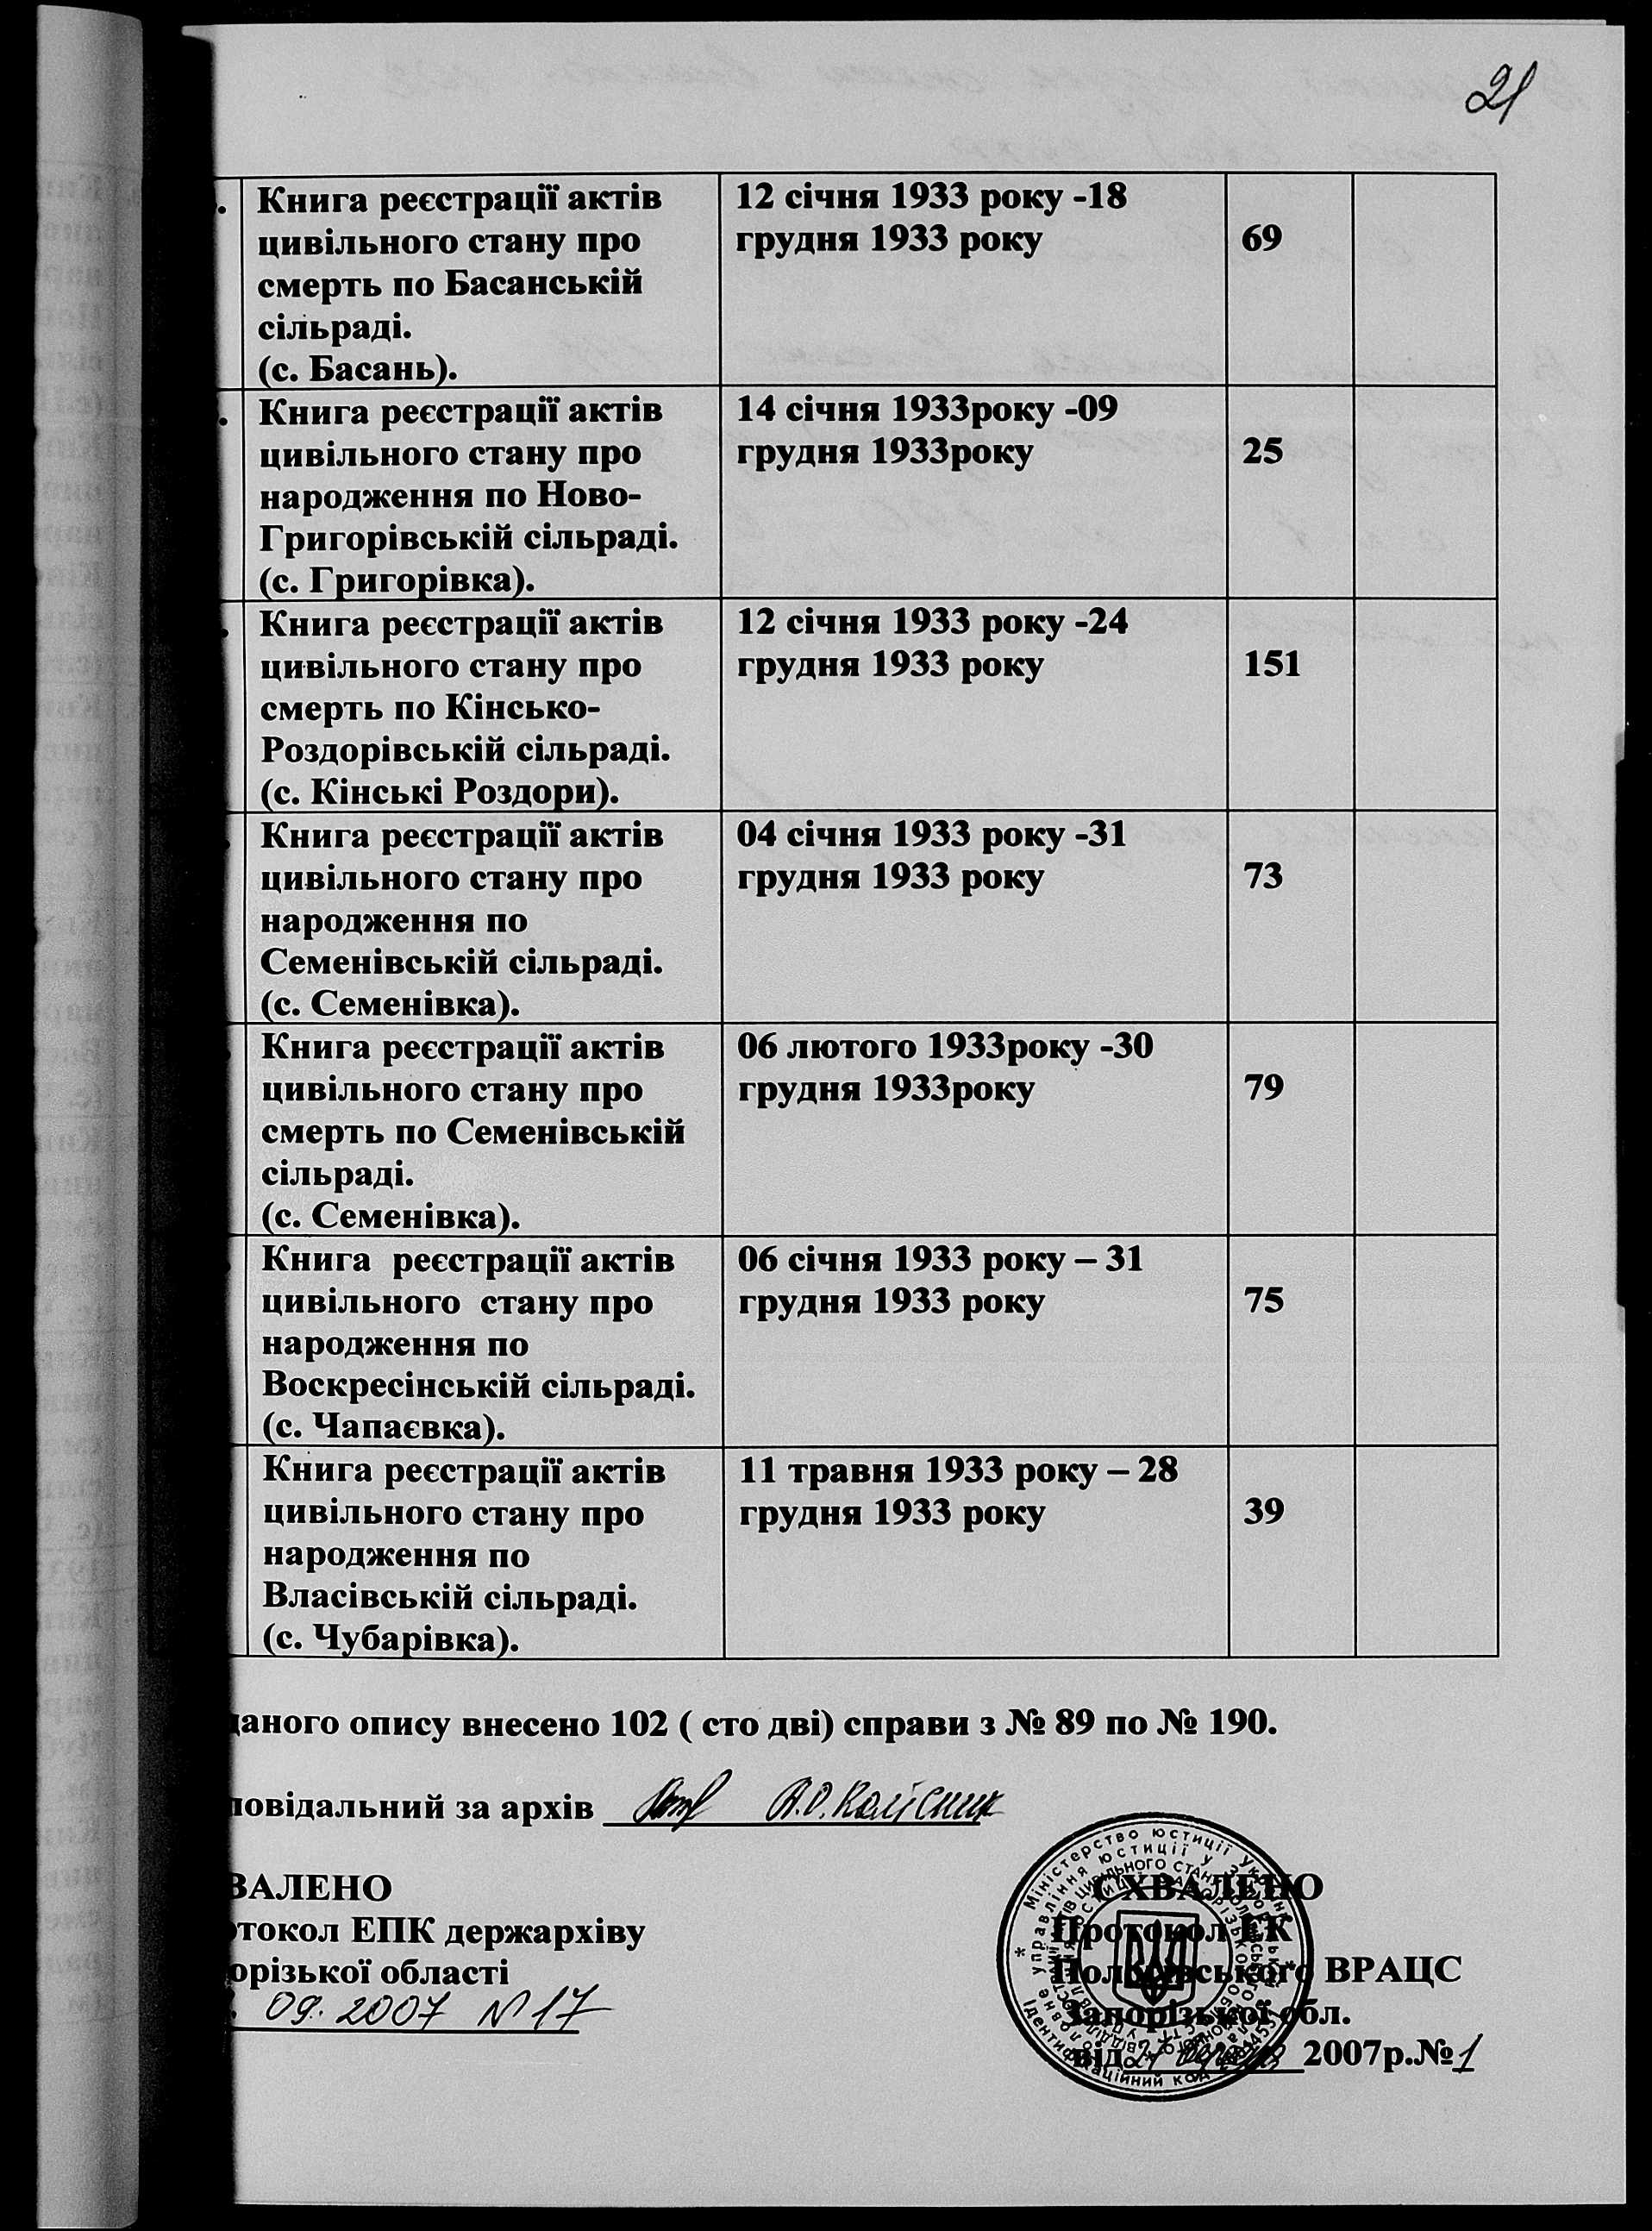 21
Книга реєстрації актів
цивільного стану про
смерть по Басанській
сільраді.
(с. Басань).
12 січня 1933 року -18
грудня 1933 року
69
Книга реєстрації актів
цивільного стану про
народження по Ново-
Григорівській сільраді.
(с. Григорівка).
14 січня 1933року -09
грудня 1933року
25
Книга реєстрації актів
цивільного стану про
смерть по Кінсько-
Роздорівській сільраді.
(с. Кінські Роздори).
12 січня 1933 року -24
грудня 1933 року
151
Книга реєстрації актів
цивільного стану про
народження по
Семенівській сільраді.
(с. Семенівка).
04 січня 1933 року -31
грудня 1933 року
73
Книга реєстрації актів
цивільного стану про
смерть по Семенівській
сільраді.
(с. Семенівка).
06 лютого 1933року -30
грудня 1933року
79
Книга реєстрації актів
цивільного стану про
народження по
Воскресінській сільраді.
(с. Чапаєвка).
06 січня 1933 року – 31
грудня 1933 року
75
Книга реєстрації актів
цивільного стану про
народження по
Власівській сільраді.
(с. Чубарівка).
11 травня 1933 року – 28
грудня 1933 року
39
даного опису внесено 102 ( сто дві) справи з № 89 по № 190.
повідальний за архів А.О. Колісник
ВАЛЕНО
токол ЕПК держархіву
орізької області
09. 2007 N 17
СХВАЛЕНО
Протокол ЕК
Пологівського ВРАЦС
Запорізької обл.
від 2007р.№1
Міністерство юстиції України